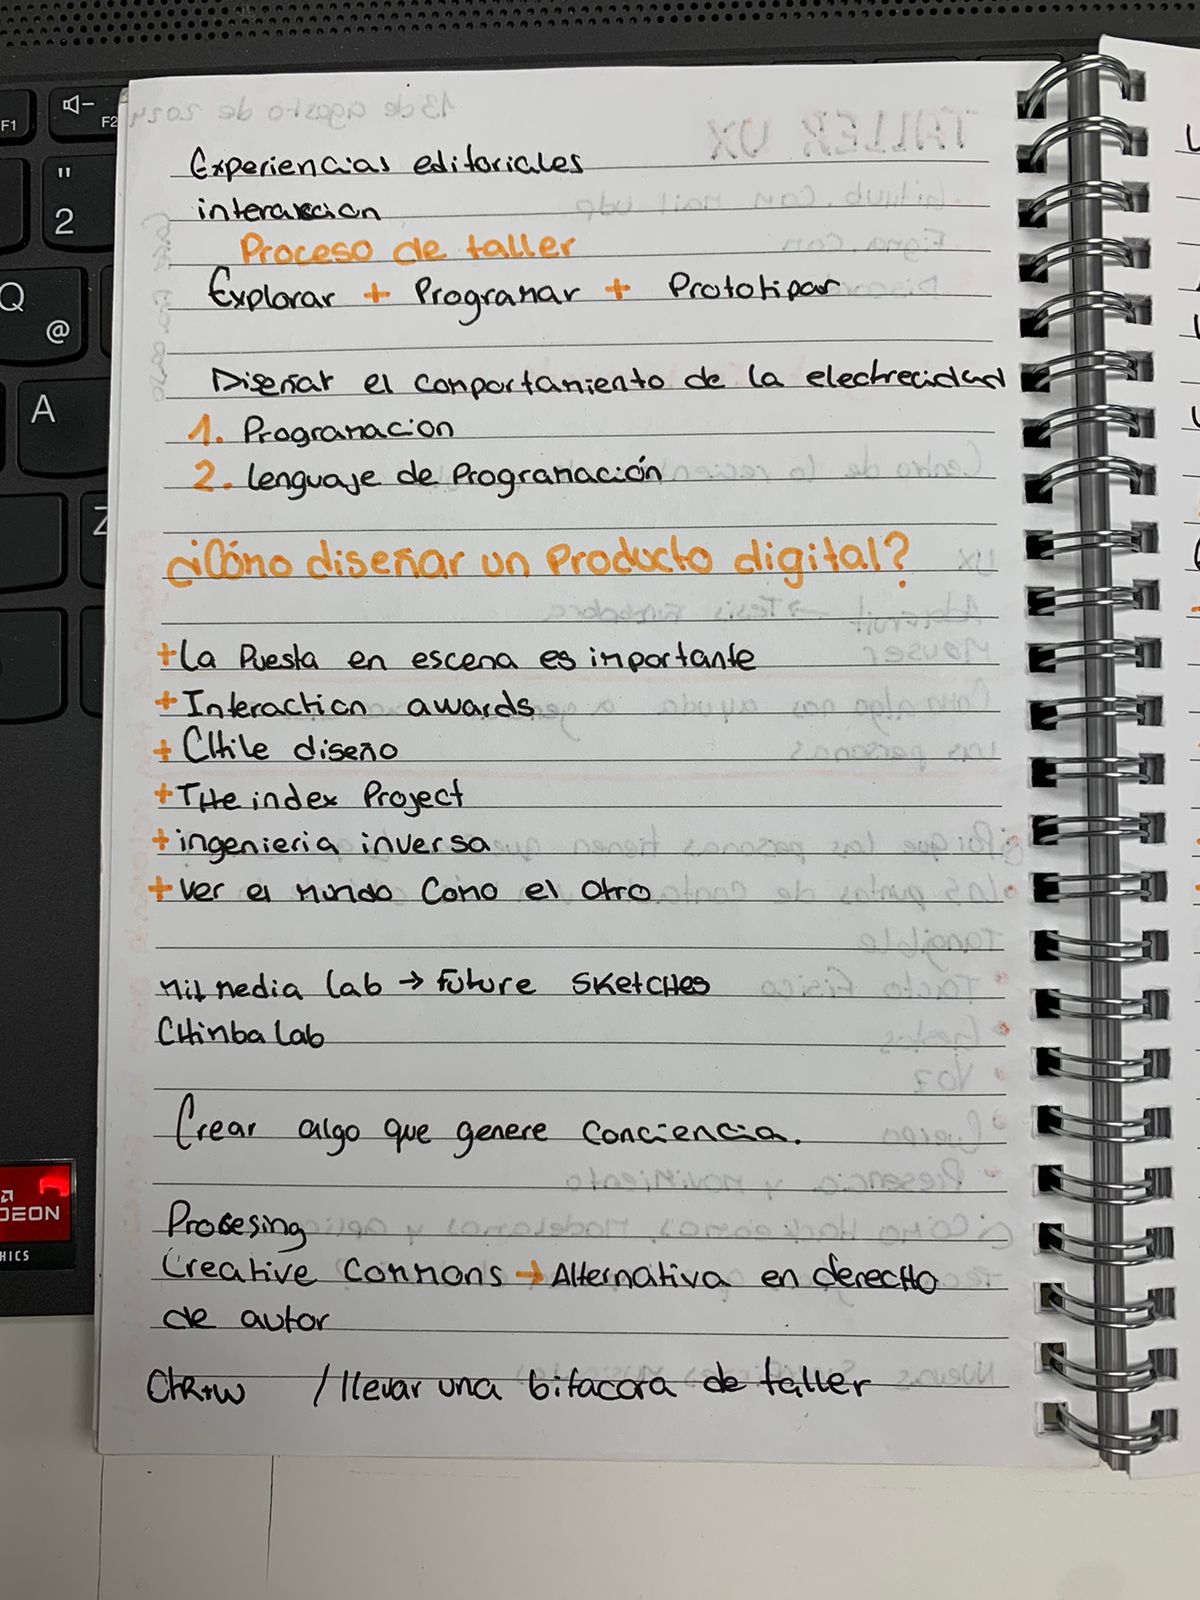 Experiencias editoriales
interaccion
Proceso de taller
Explorar + Programar + Prototipar
Diseñar el comportamiento de la electrecidad
1. Programacion
2. lenguaje de Programación
¿Cómo diseñar un Producto digital?
+ La Puesta en escena es importante
+ Interaction awards
+ CHile diseño
+ THe index Project
+ ingenieria inversa
+ ver el mundo como el otro
Mit media lab → Future SketcHes
CHimba lab
Crear algo que genere conciencia.
Procesing
Creative Commons → Alternativa en derecHo
de autor
CtR+W / llevar una bitacora de taller
F1
F2
"
2
Q
@
A
Z